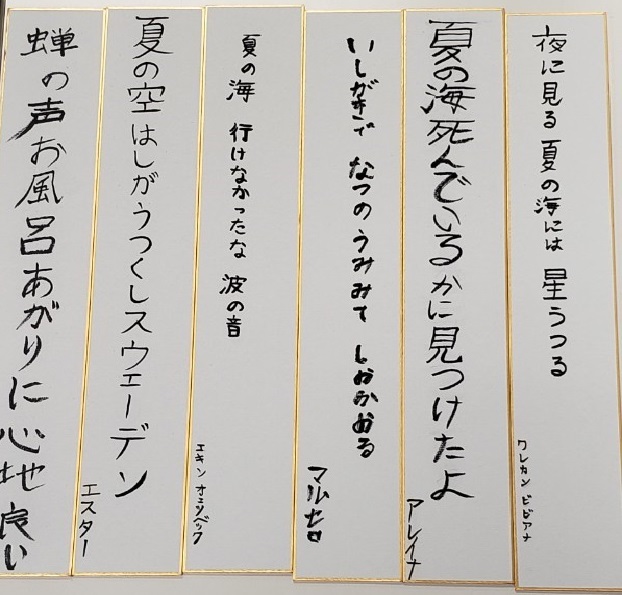 夜に見る 夏の海には 星うつる
ワレカン ビビアナ
夏の海死んでいるかに見つけたよ
アレイナ
いしがきで なつのうみみて しおかおる
マルセロ
夏の海 行けなかったな 波の音
エキン オズベック
夏の空はしがうつくしスウェーデン
エスター
蝉の声お風呂あがりに心地良い